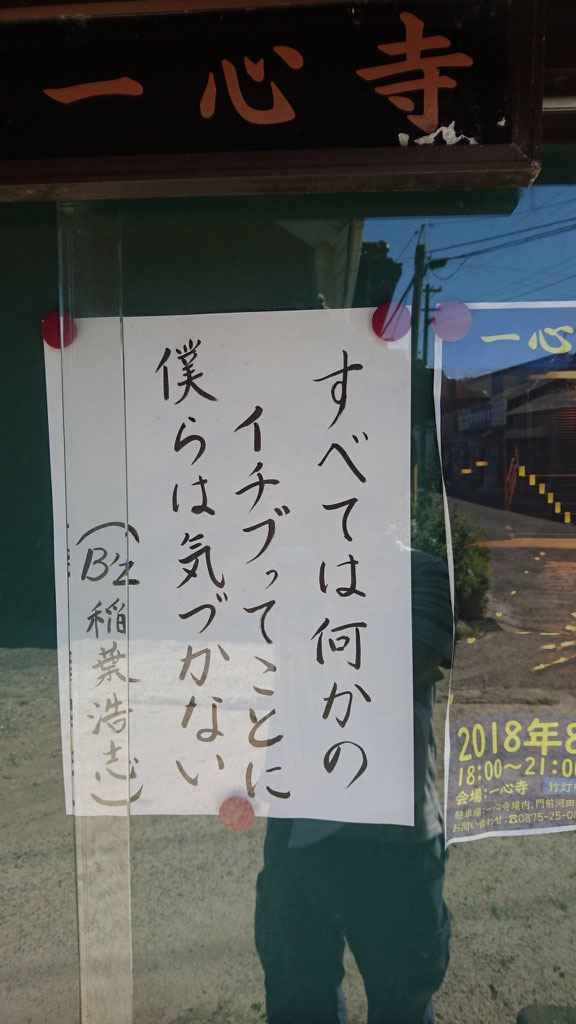 一心寺
すべては何かの
イチブってことに
僕らは気づかない
(B'z 稲葉浩志)
一心
2018年8
18:00～21:0
会場:一心寺
竹灯
駐車場:一心寺境内、門前河田
お問い合わせ:☎0875-25-08